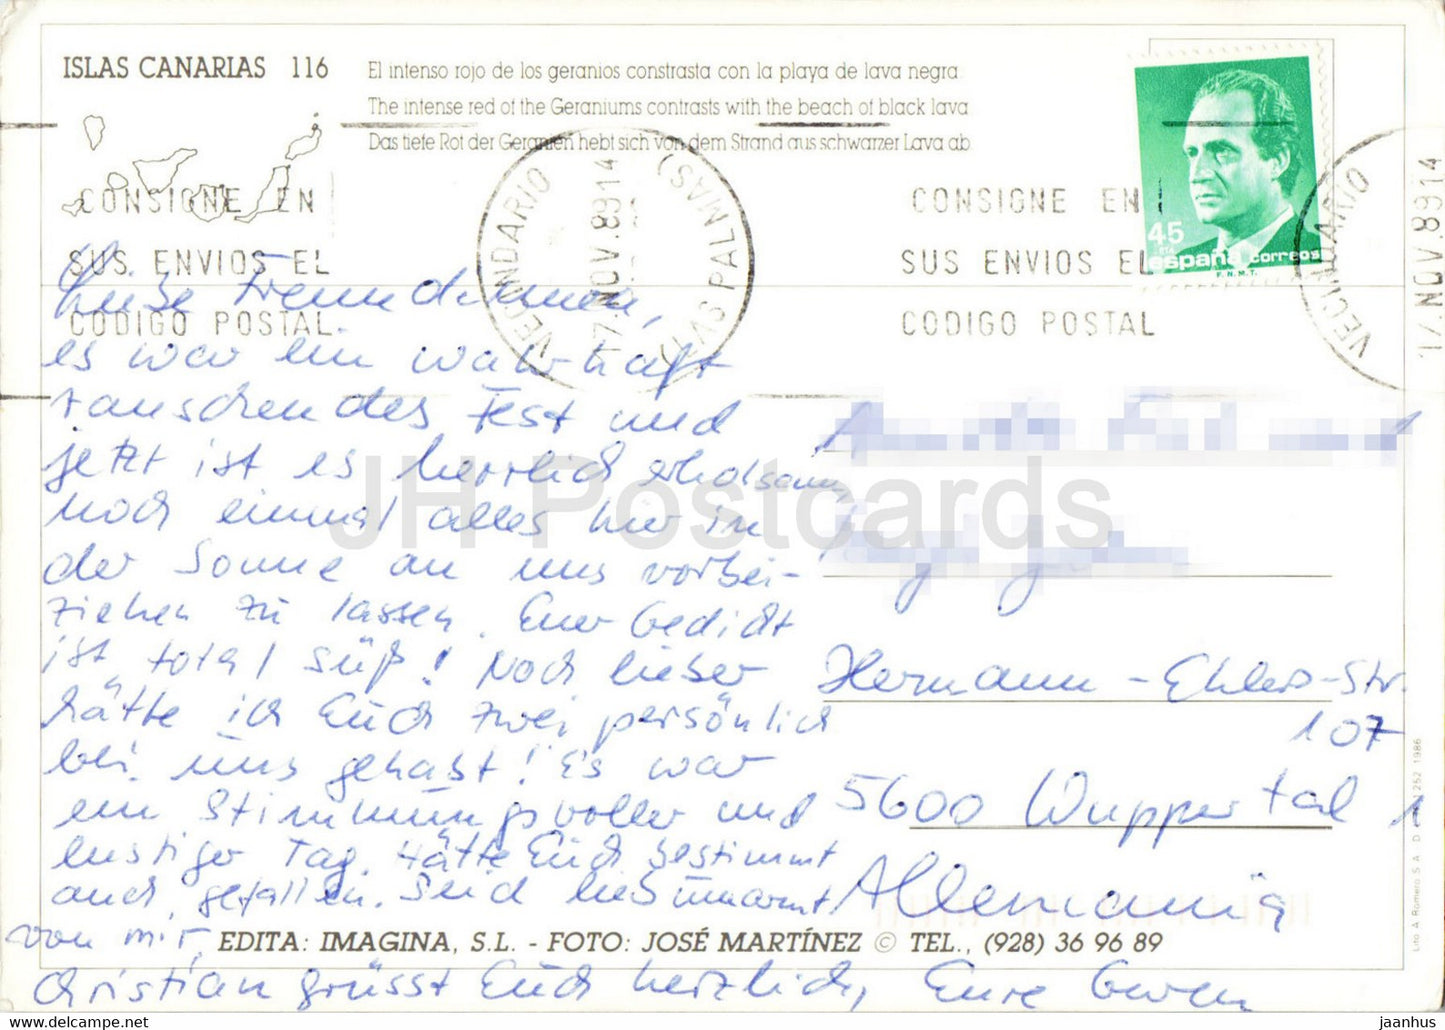 ISLAS CANARIAS 116
El intenso rojo de los geranios constrasta con la playa de lava negra
The intense red of the Geraniums contrasts with the beach of black lava
Das tiefe Rot der Geranien hebt sich von dem Strand aus schwarzer Lava ab
CONSIGNE EN
SUS ENVIOS EL
CODIGO POSTAL
VECINDARIO
17 NOV. 89 14
(LAS PALMAS)
CONSIGNE EN
SUS ENVIOS EL
CODIGO POSTAL
VECINDARIO
17. NOV. 89 14
45
PTA
españa correos
F.N.M.T.
Liebe
es war ein wahrhaft
rauschendes Fest und
jetzt ist es herrlich erholsam,
noch einmal alles hier in
der Sonne an uns vorbei-
ziehen zu lassen. Euer Gedicht
ist total süß! Noch lieber
hätte ich Euch zwei persönlich
bei uns gehabt! Es war
ein Stimmungsvoller und
lustiger Tag. Hätte Euch bestimmt
auch gefallen. Seid lieb umarmt
von mir,
Christian grüsst Euch herzlich, Eure
Hermann-Ehlers-Str.
107
5600 Wuppertal 1
Allemania
EDITA: IMAGINA, S.L. - FOTO: JOSÉ MARTÍNEZ © TEL., (928) 36 96 89
Lito A. Romero S. A. 252 1986
JH Postcards
jaanhus - https://www.delcampe.net